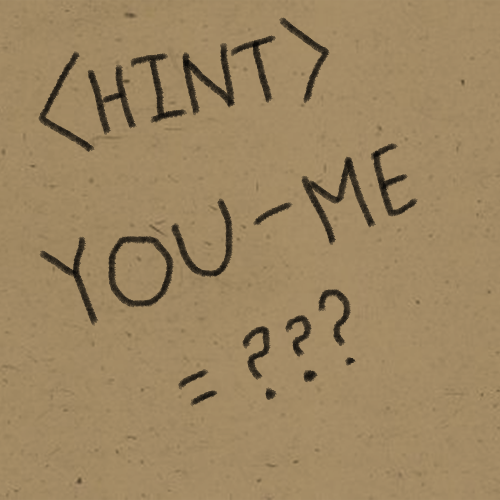 <HINT>
YOU-ME
=???